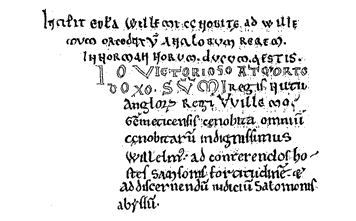 Incipit epl'a Willelmi cenobite ad Wille
mum ortodoxū Anglorum regem.
In Normannorum ducum gestis.
PIO VICTORIOSO ATQ' ORTO
DOXO. SŪMI regis nutu
Anglor' regi VVillelmo.
Gemeticensis cenobita omniū
cenobitarū indignissimus
Willelm'. ad conterendos ho
stes sansonis fortitudinē. &
ad discernendū iudiciū Salomonis
abyssū.